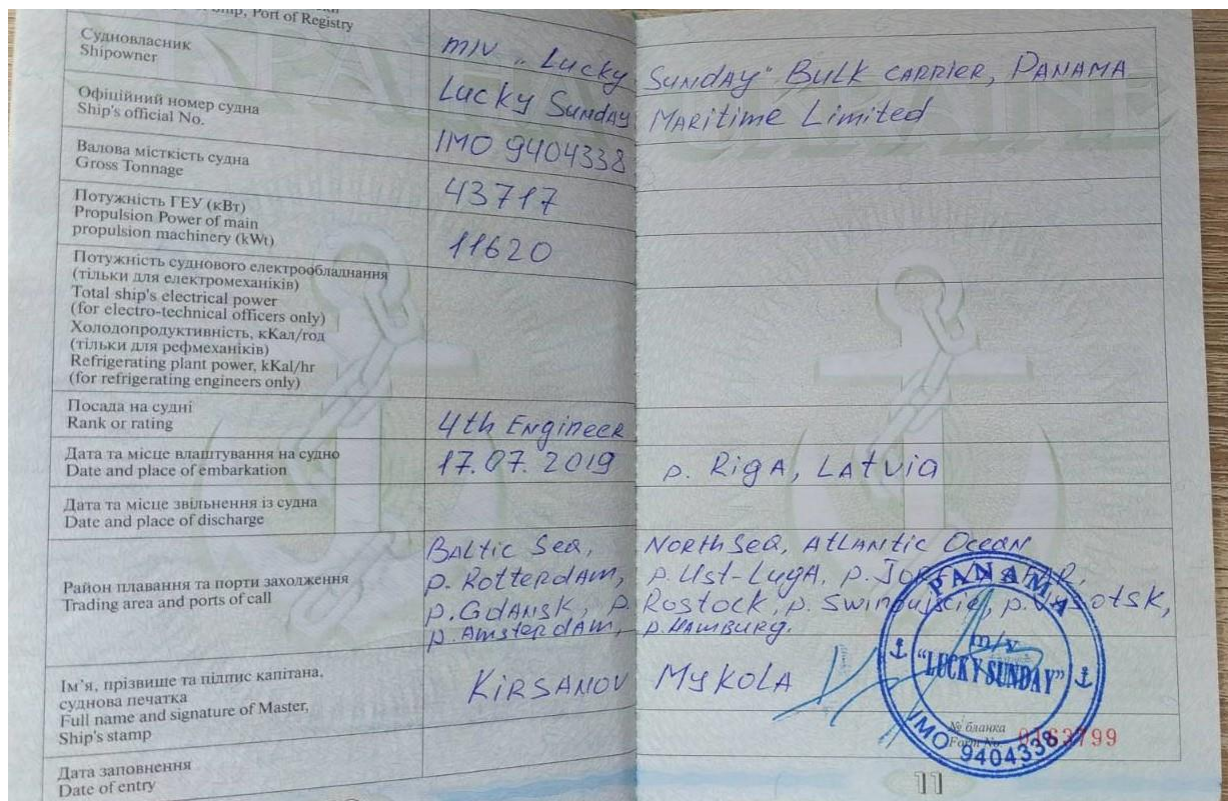 Ship, Port of Registry
m/v „Lucky Sunday" Bulk carrier, Panama
Судновласник
Shipowner
Lucky Sunday Maritime Limited
Офіційний номер судна
Ship's official No.
IMO 9404338
Валова місткість судна
Gross Tonnage
43717
Потужність ГЕУ (кВт)
Propulsion Power of main
propulsion machinery (kWt)
11620
Потужність суднового електрообладнання
(тільки для електромеханіків)
Total ship's electrical power
(for electro-technical officers only)
Холодопродуктивність, кКал/год
(тільки для рефмеханіків)
Refrigerating plant power, kKal/hr
(for refrigerating engineers only)
Посада на судні
Rank or rating
4th Engineer
Дата та місце влаштування на судно
Date and place of embarkation
17.07.2019 p. Riga, Latvia
Дата та місце звільнення із судна
Date and place of discharge
Район плавання та порти заходження
Trading area and ports of call
Baltic Sea, North Sea, Atlantic Ocean
p. Rotterdam, p. Ust-Luga, p.
p. Gdansk, p. Rostock, p. Swinoujscie, p. Vysotsk,
p. Amsterdam, p. Hamburg.
Ім'я, прізвище та підпис капітана,
суднова печатка
Full name and signature of Master,
Ship's stamp
Kirsanov Mykola
PANAMA
m/v
"LUCKY SUNDAY"
IMO 9404338
№ бланка
Form No. 0163799
Дата заповнення
Date of entry
11